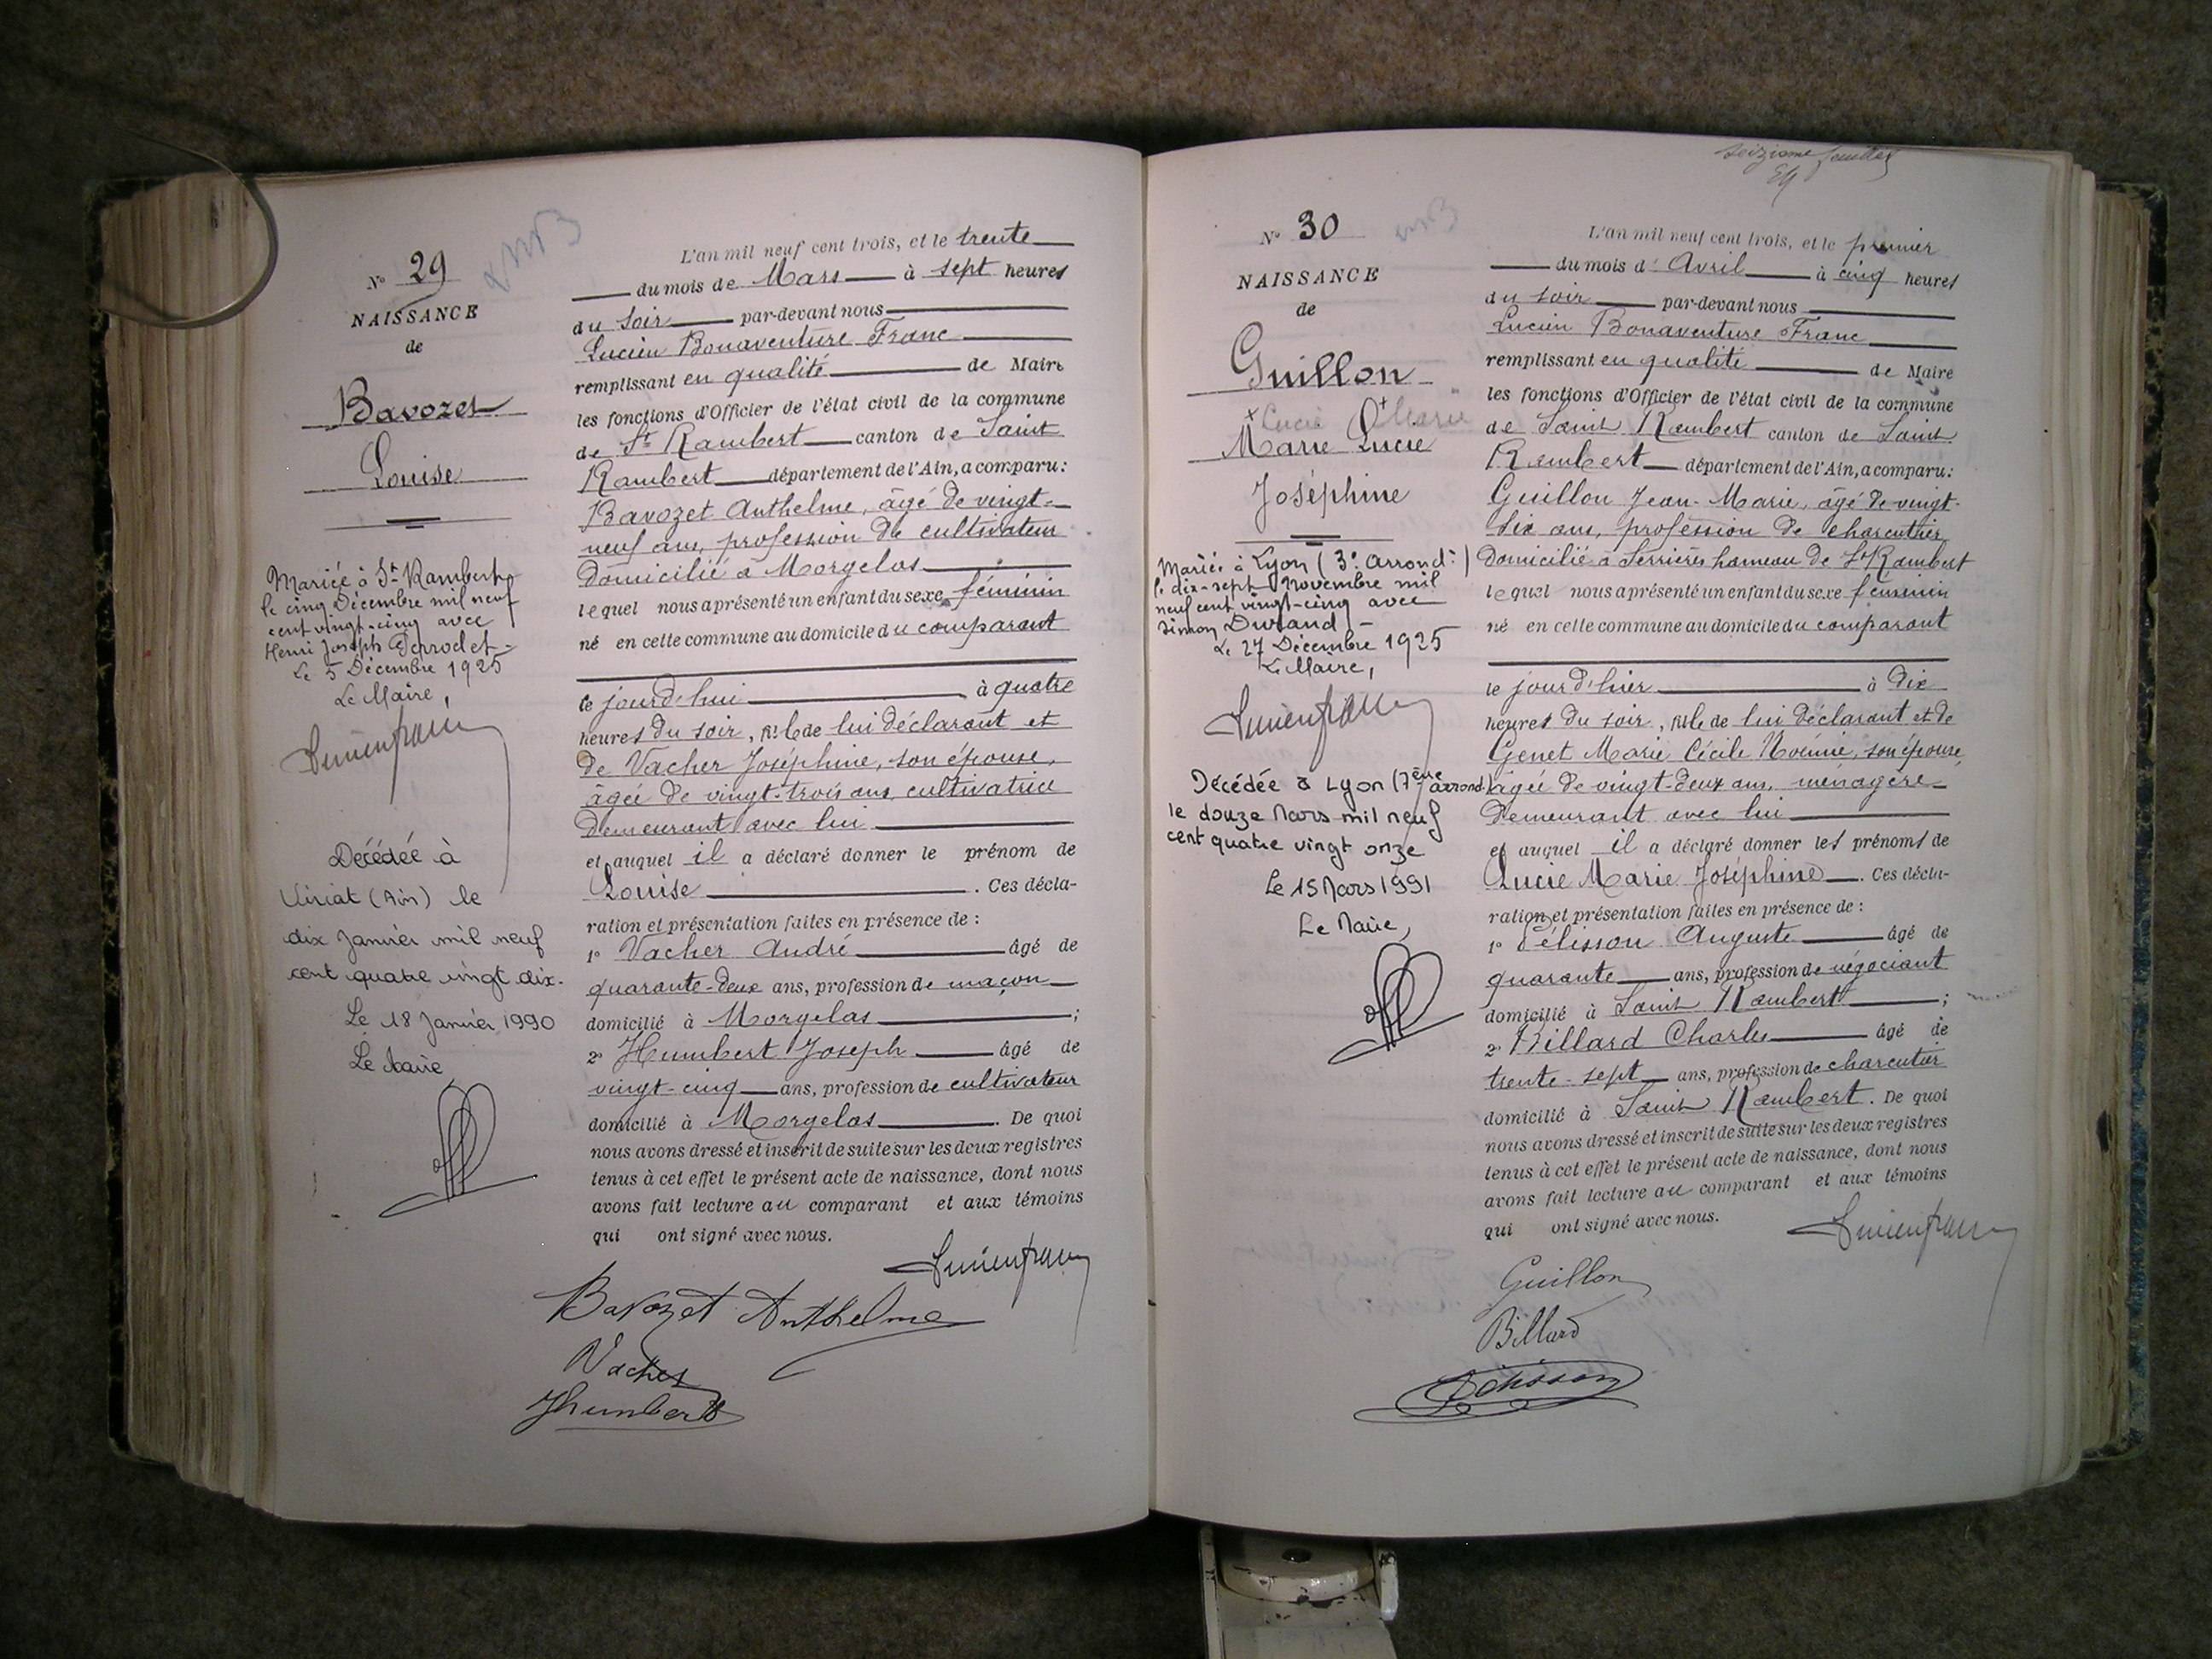 N° 29
NAISSANCE
de
Bavozet
Louise
Mariée à St Rambert
le cinq Décembre mil neuf
cent vingt-cinq avec
Henri Joseph Perrodet -
Le 5 Décembre 1925
Le Maire,
Décédée à
Viriat (Ain) le
dix Janvier mil neuf
cent quatre vingt dix.
Le 18 Janvier 1990
Le Maire
L'an mil neuf cent trois, et le trente
du mois de Mars à sept heures
du soir par-devant nous
Lucien Bonaventure Franc
remplissant en qualité de Maire
les fonctions d'Officier de l'état civil de la commune
de St Rambert canton de Saint
Rambert département de l'Ain, a comparu:
Bavozet Anthelme, âgé de vingt-
neuf ans, profession de cultivateur
domicilié à Morgelas
lequel nous a présenté un enfant du sexe féminin
né en cette commune au domicile du comparant
le jour d'hui à quatre
heures du soir, fille de lui déclarant et
de Vacher Joséphine, son épouse,
âgée de vingt-trois ans, cultivatrice
demeurant avec lui
et auquel il a déclaré donner le prénom de
Louise. Ces décla-
ration et présentation faites en présence de :
1° Vacher André âgé de
quarante-deux ans, profession de maçon
domicilié à Morgelas ;
2° Humbert Joseph âgé de
vingt-cinq ans, profession de cultivateur
domicilié à Morgelas. De quoi
nous avons dressé et inscrit de suite sur les deux registres
tenus à cet effet le présent acte de naissance, dont nous
avons fait lecture au comparant et aux témoins
qui ont signé avec nous.
Lucien franc
Bavozet Anthelme
Vacher
Jhumbert
seizième feuillet
N° 30
NAISSANCE
de
Guillon
+ Lucie + Marie
Marie Lucie
Joséphine
Mariée à Lyon (3e arrond:)
le dix-sept Novembre mil
neuf cent vingt-cinq avec
Simon Durand -
Le 27 Décembre 1925
Le Maire,
Lucien franc
Décédée à Lyon (7ème arrond.)
le douze Mars mil neuf
cent quatre vingt onze
Le 15 Mars 1991
Le Maire,
L'an mil neuf cent trois, et le premier
du mois d'Avril à cinq heures
du soir par-devant nous
Lucien Bonaventure Franc
remplissant en qualité de Maire
les fonctions d'Officier de l'état civil de la commune
de Saint Rambert canton de Saint
Rambert département de l'Ain, a comparu:
Guillon Jean-Marie, âgé de vingt-
six ans, profession de charcutier
domicilié à Serrières hameau de St Rambert
lequel nous a présenté un enfant du sexe féminin
né en cette commune au domicile du comparant
le jour d'hier à dix
heures du soir, fille de lui déclarant et de
Genet Marie Cécile Noémie, son épouse,
âgée de vingt-deux ans, ménagère
demeurant avec lui
et auquel il a déclaré donner les prénoms de
Lucie Marie Joséphine. Ces décla-
ration et présentation faites en présence de :
1° Pélisson Auguste âgé de
quarante ans, profession de négociant
domicilié à Saint Rambert ;
2° Billard Charles âgé de
trente-sept ans, profession de charcutier
domicilié à Saint Rambert. De quoi
nous avons dressé et inscrit de suite sur les deux registres
tenus à cet effet le présent acte de naissance, dont nous
avons fait lecture au comparant et aux témoins
qui ont signé avec nous.
Lucien franc
Guillon
Billard
Pélisson